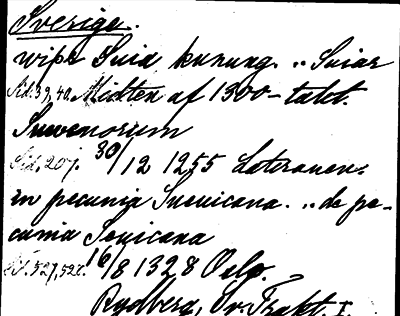 Sverige.
wipr Suia kunung. „ Suiar
Sid. 39, 40. Midten af 1300-talet.
Suuenorum
Sid. 207. 30/12 1255 Lateranen:
in pecunia Sueuicana. „ de pe-
cunia Seuicana
Sid. 527, 528. 16/8 1328 Oslo.
Rydberg, Sv. Trakt. I.